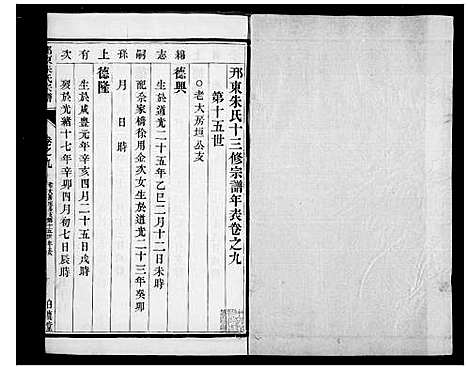 邗東朱氏十三修宗譜年表卷之九
第十五世
○老大房垣公支
錫 德興
志 生於道光二十五年乙巳二月十二日未時
嗣 配佘家橋徐用金次女生於道光二十三年癸卯
孫 月 日 時
上 德隆
有 生於咸豊元年辛亥四月二十五日戌時
次 歿於光緒十七年辛卯四月初七日辰時
卷之九